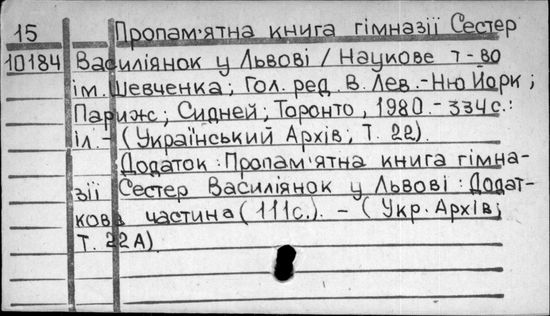 15 Пропам'ятна книга гімназії Сестер
10184 Василіянок у Львові / Наукове т-во
ім. Шевченка; Гол. ред. В. Лев. - Ню Йорк;
Париж; Сидней; Торонто, 1980. - 334 с.:
іл. - (Український Архів; Т. 22).
Додаток: Пропам'ятна книга гімна-
зії Сестер Василіянок у Львові: Додат-
кова частина (111 с.). - (Укр. Архів;
Т. 22А)